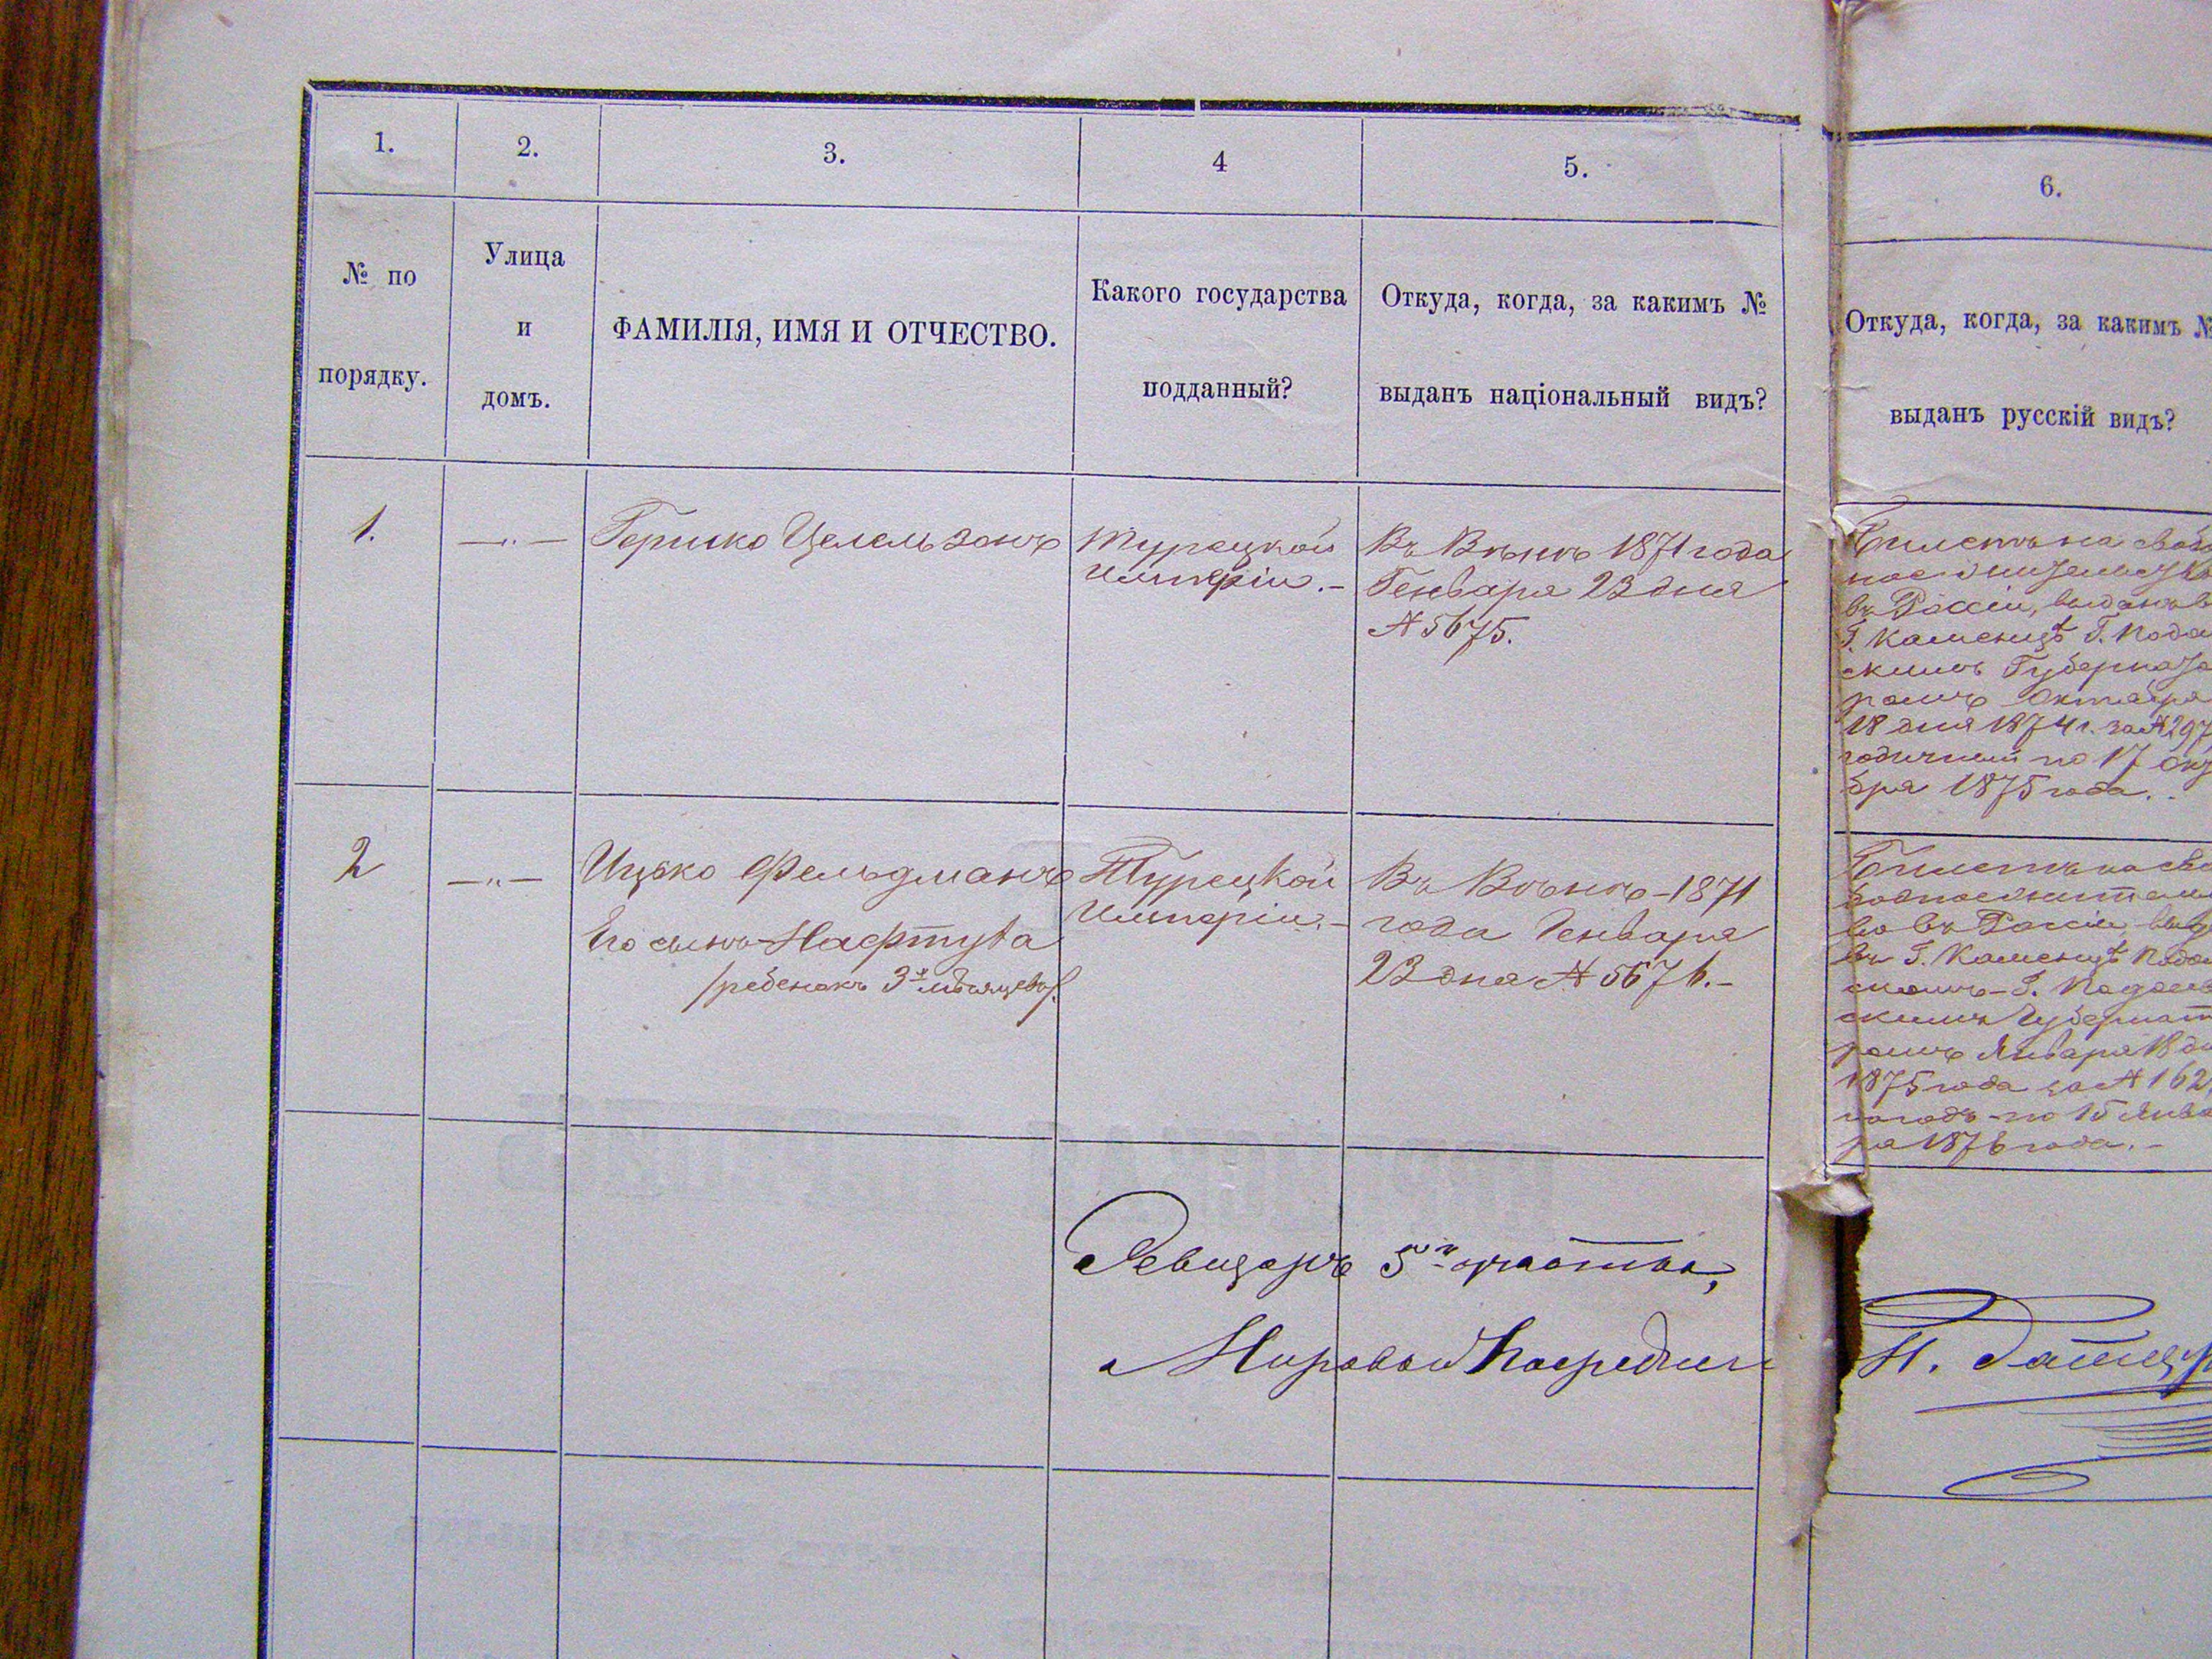 1.
2.
3.
4
5.
6.
№ по
порядку.
Улица
и
домъ.
ФАМИЛІЯ, ИМЯ И ОТЧЕСТВО.
Какого государства
подданный?
Откуда, когда, за какимъ №
выданъ національный видъ?
Откуда, когда, за какимъ №
выданъ русскій видъ?
1.
—„—
Гершко
Турецкой
Имперіи.–
Въ Вѣнѣ 1871 года
Генваря 23 дня
№ 5675.
Билетъ на
въ Россіи,
Г. Каменцѣ Г. Подоль
скимъ Губернато
ромъ Октября
18 дня 1874 г. за № 297
годичный по 17 Октя
бря 1875 года.
2
—„—
Ицько Фельдманъ
Его сынъ Нафтула
/ребенокъ 3х мѣсяцевъ/.
Турецкой
Имперіи.–
Въ Вѣнѣ–1871
года Генваря
23 дня № 5676.–
Билетъ на
въ Россіи
въ Г. Каменцѣ Подоль
скомъ–Г. Подоль
скимъ Губернато
ромъ Января 18
1875 года за № 162
по 15 Янва
ря 1876 года.–
Ревизоръ 5го участка,
Мировой Посредникъ
Н.